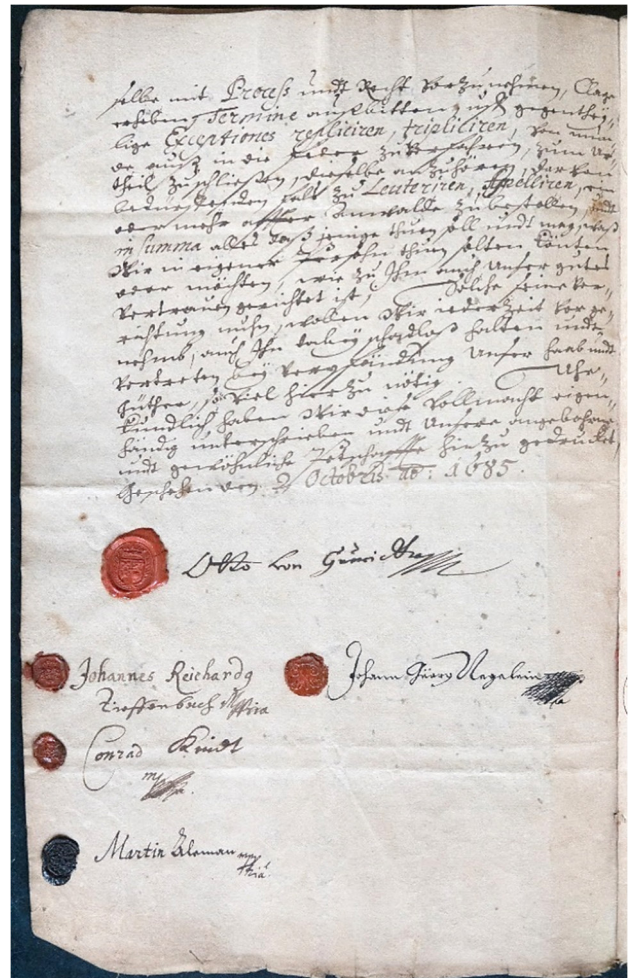 selbe mit Process undt Recht vorzunehmen, Clage
erheben, Termine außbitten, uff gegenthei-
lige Exceptiones repliciren, tripliciren, von mun-
de auß in die Feder zuverfahren, zum Ur-
theil zuschließen, dieselbe anzuhören, darvon
bedürffenden fals zu Leuteriren, Appelliren, ein
oder mehr affter Anwalde zubestellen, undt
in summa alles daßjenige thun soll undt mag, waß
Wir in eigener Persohn thun solten könten
oder möchten, wie zu Ihm auch Unser gutes
Vertrauen gerichtet ist, Solche seine ver-
richtung nuhn, wollen Wir iederzeit vor ge-
nehmb, auch Ihn dabey schadlaß halten undt
vertreten bey verpfändung Unser Haab undt
Güther, so viel hierzu nötig. Uhr-
kündlich haben Wir diese Vollmacht eigen-
händig unterschrieben undt Unsere angebohrne
undt gewöhnliche Petschaffte hinzu gedrucket,
Geschehen den Octobris ao: 1685.
Otto von Gericke
Johannes Reichardg
Tieffenbach
Johann Georg Nagelein
Conrad Kindt
Martin Aleman